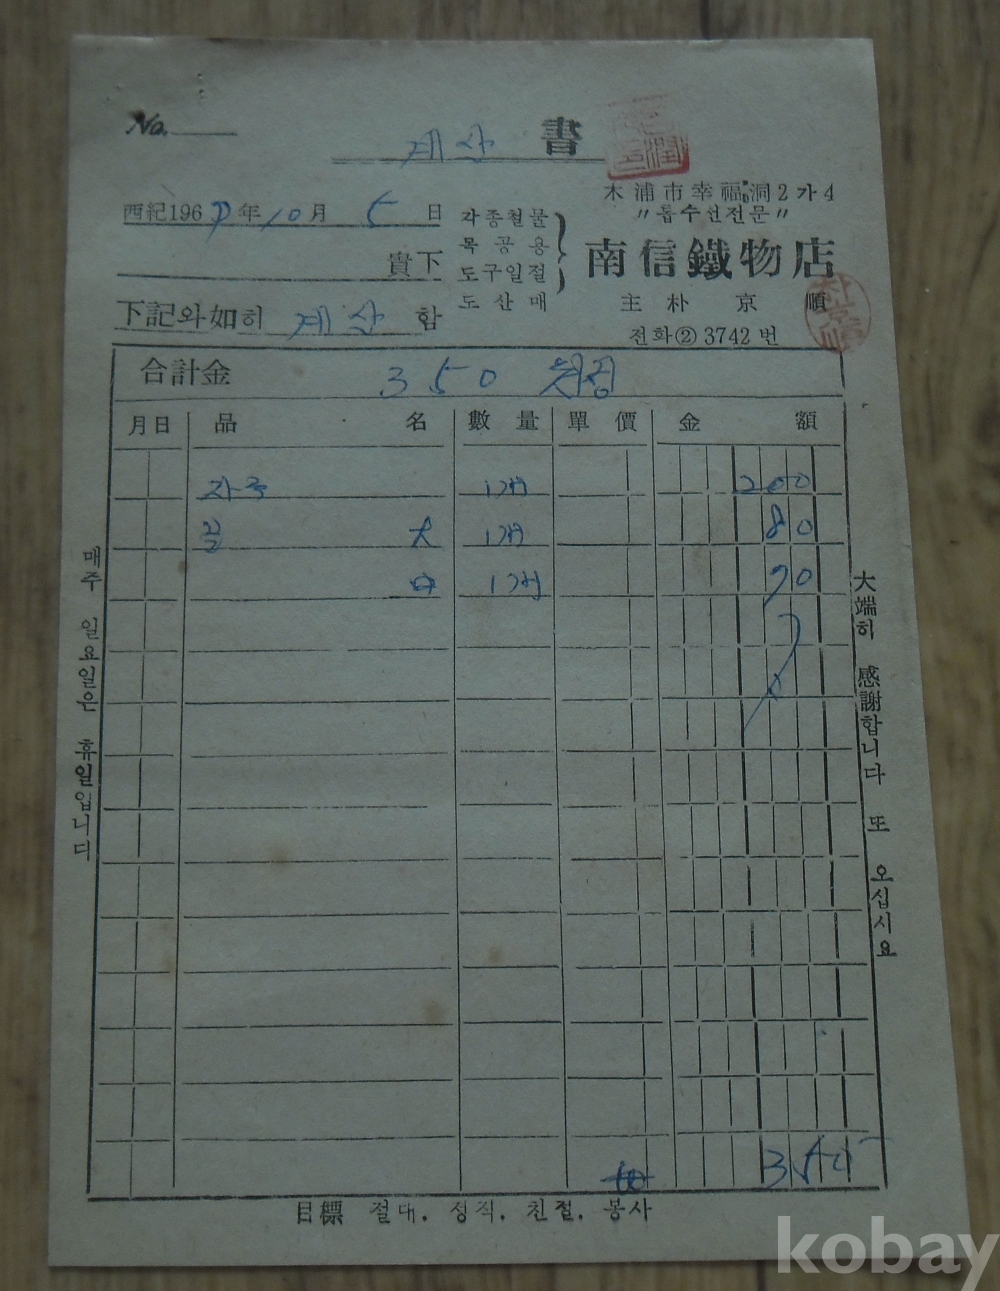 No.
계산 書
木浦市幸福洞2가4
西紀1967年 10月 5日
〃톱수선전문〃
각종철물
목공용
도구일절
도산매
南信鐵物店
貴下
主 朴京順
下記와如히 계산 함
전화② 3742번
合計金 350 원정
月日 品名 數量 單價 金額
자루 1개 200
끌 大 1개 80
中 1개 70
350
매주 일요일은 휴일입니다
大端히 感謝합니다 또 오십시요
目標 절대. 정직. 친절. 봉사
kobay